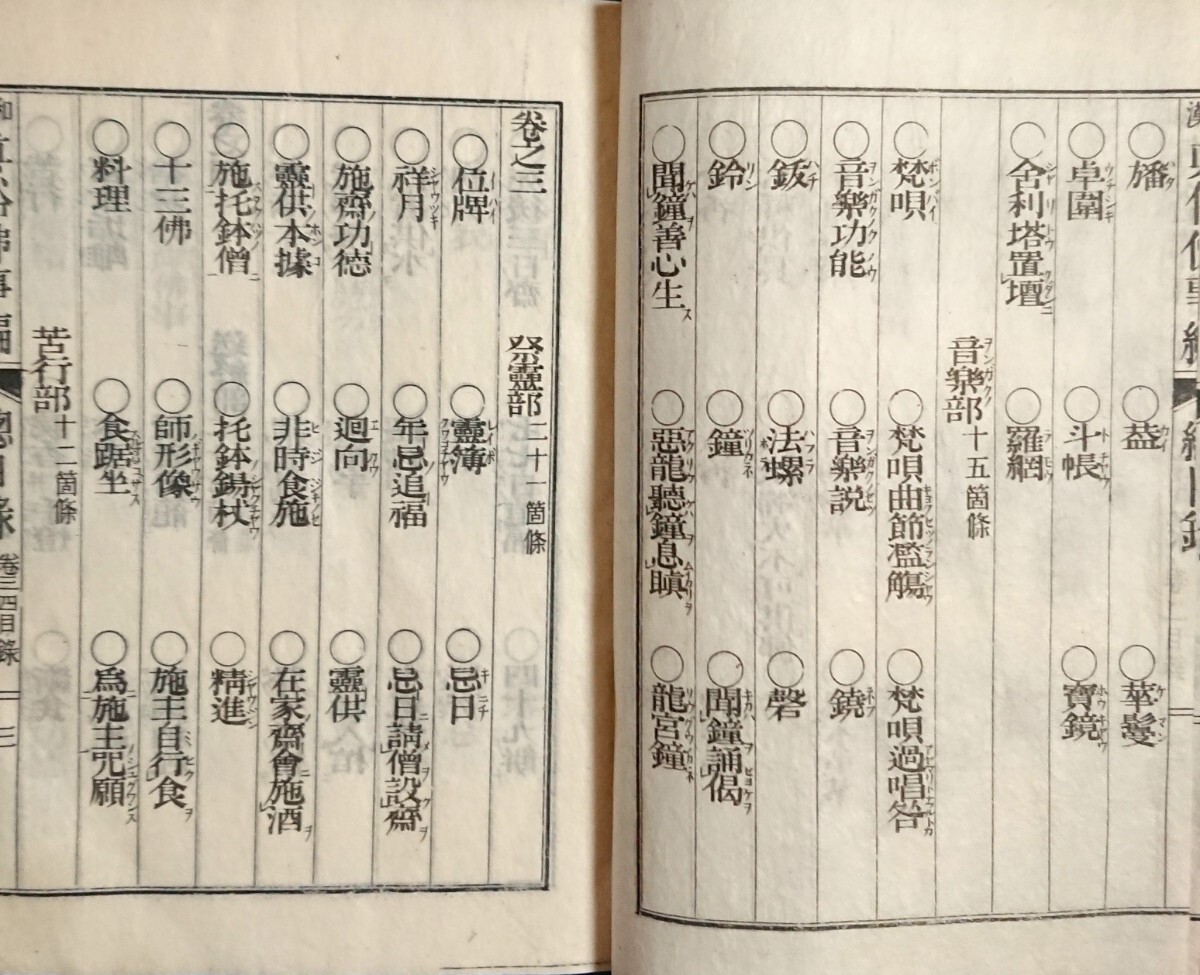 ○旛 ○葢 ○華鬘
○卓圍 ○斗帳 ○寶鏡
○舍利塔置壇 ○羅網
音樂部 十五箇條
○梵唄 ○梵唄曲節濫觴 ○梵唄過唱咎
○音樂功能 ○音樂説 ○鐃
○鈸 ○法螺 ○磬
○鈴 ○鐘 ○聞鐘誦偈
○聞鐘善心生 ○惡龍聽鐘息瞋 ○龍宮鐘
卷之三
祭靈部 二十一箇條
○位牌 ○靈簿 ○忌日
○祥月 ○年忌追福 ○忌日請僧設齋
○施齋功德 ○迴向 ○靈供
○靈供本據 ○非時食施 ○在家齋會施酒
○施托鉢僧 ○托鉢錫杖 ○精進
○十三佛 ○師形像 ○施主自行食
○料理 ○食踞坐 ○爲施主咒願
苦行部 十二箇條
卷三四目錄 三